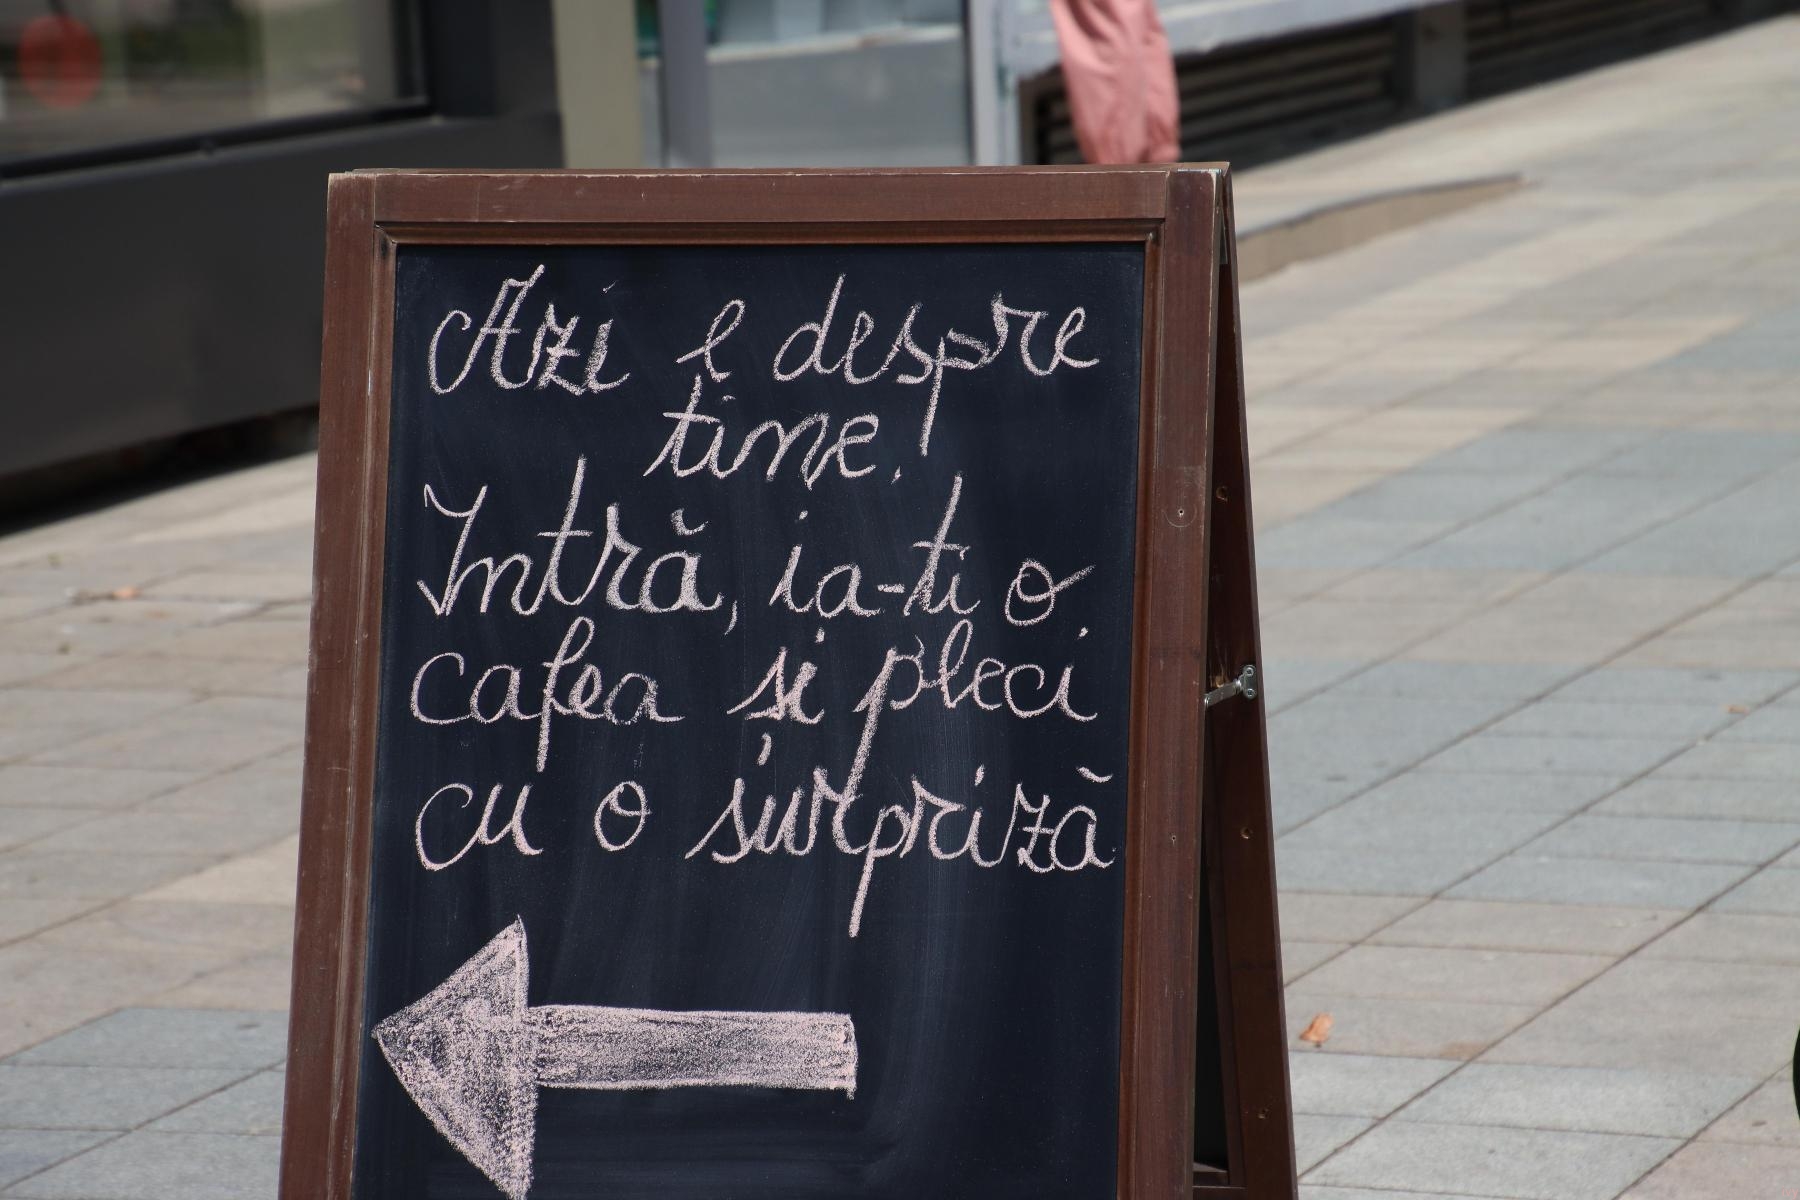 Azi e despre
tine.
Intră, ia-ți o
cafea și pleci
cu o surpriză